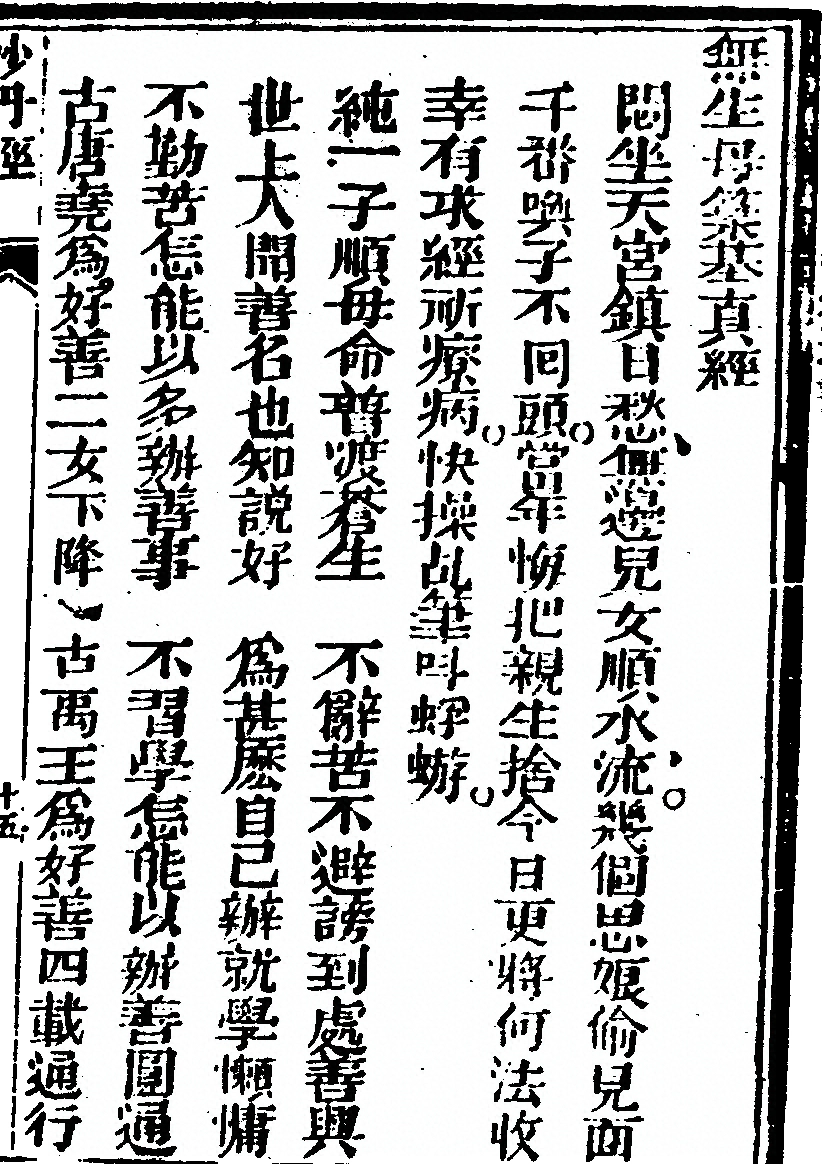 無生母築基真經
悶坐天宮鎮日愁無邊兒女順水流幾個思娘偷見面
千番喚子不回頭當年悔把親生捨今日更將何法收
幸有求經所療病快操乩筆叫蜉蝣
純一子順母命普渡蒼生　不辭苦不避謗到處善興
世上人開善名也知說好　為甚麽自己辦就學懶慵
不勤苦怎能以多辦善事　不習學怎能以辦善圓通
古唐堯為好善二女下降　古禹王為好善四載通行
妙丹經
十五